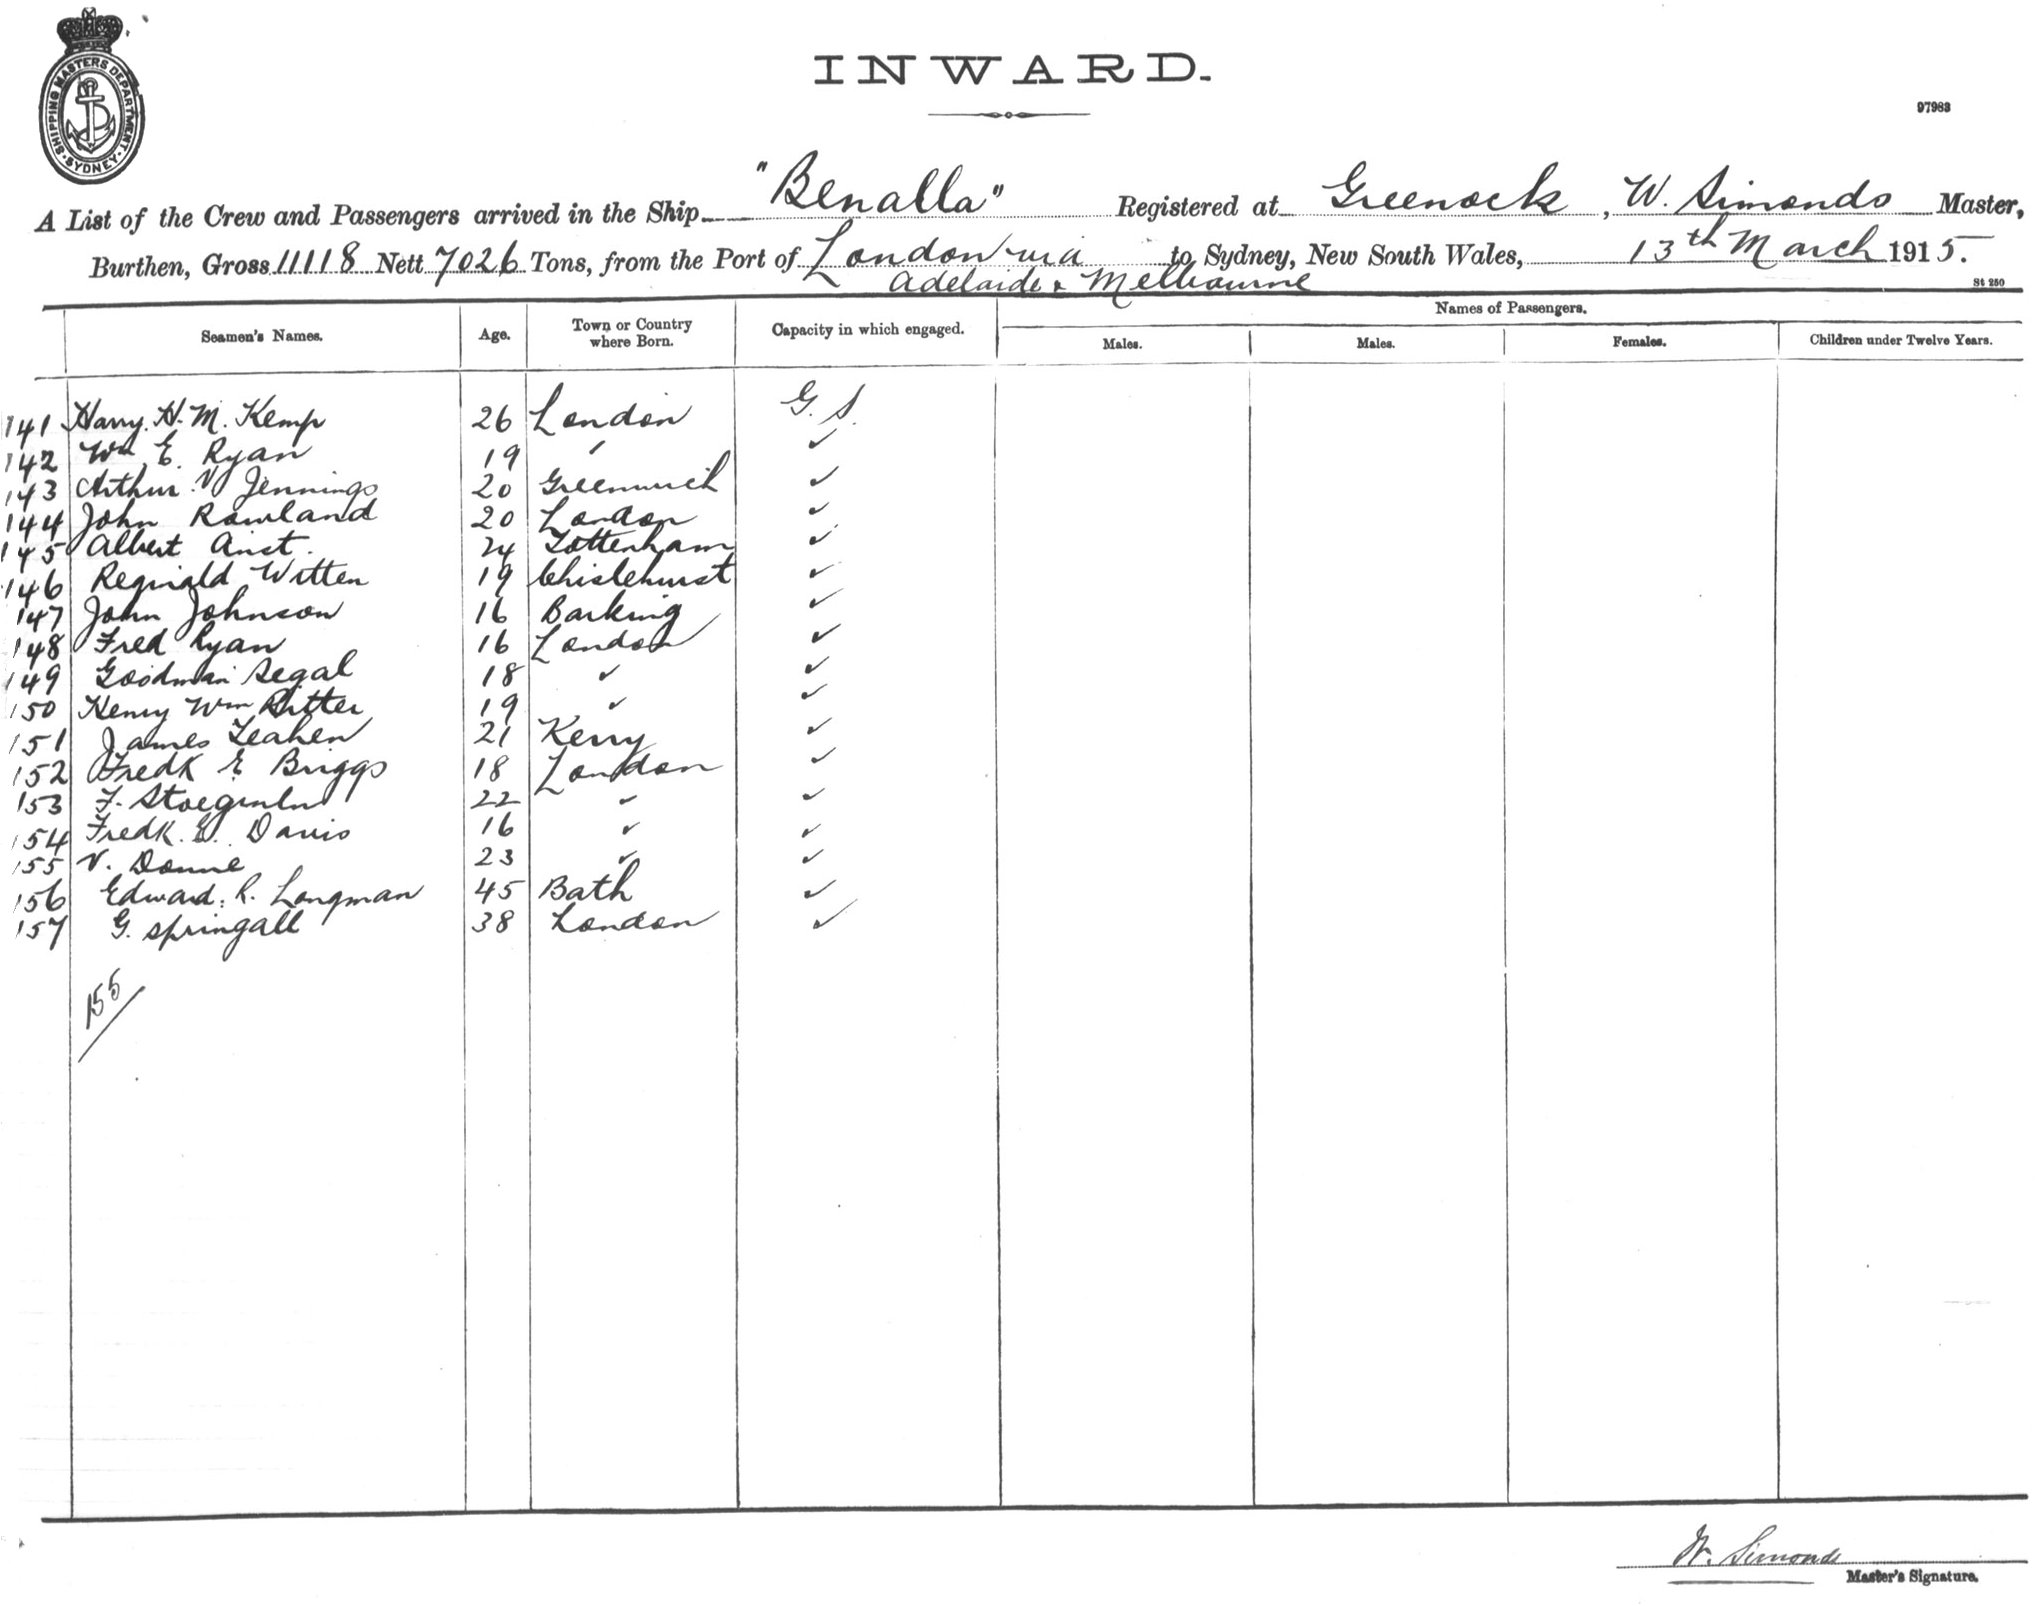 SHIPPING MASTERS DEPARTMENT
SYDNEY
INWARD.
97983
A List of the Crew and Passengers arrived in the Ship "Benalla" Registered at Greenock, W. Simonds Master,
Burthen, Gross 11118 Nett 7026 Tons, from the Port of London via to Sydney, New South Wales, 13th March 1915.
Adelaide & Melbourne
St 250
Seamen's Names. Age. Town or Country where Born. Capacity in which engaged. Names of Passengers.
Males. Males. Females. Children under Twelve Years.
141 Harry. H. M. Kemp 26 London G. S.
142 Wm E. Ryan 19 " ✓
143 Arthur. V Jennings 20 Greenwich ✓
144 John Rowland 20 London ✓
145 Albert Aust. 24 Tottenham ✓
146 Reginald Witten 19 Chislehurst ✓
147 John Johnson 16 Barking ✓
148 Fred Ryan 16 London ✓
149 Goodman Segal 18 ✓ ✓
150 Henry Wm Ritter 19 ✓ ✓
151 James Leahen 21 Kerry ✓
152 Fredk E Briggs 18 London ✓
153 F. 22 ✓ ✓
154 Fredk. E. Davis 16 ✓ ✓
155 V. Donne 23 ✓ ✓
156 Edward. R. Longman 45 Bath ✓
157 G. Springall 38 London ✓
155/
W. Simonds
Master's Signature.